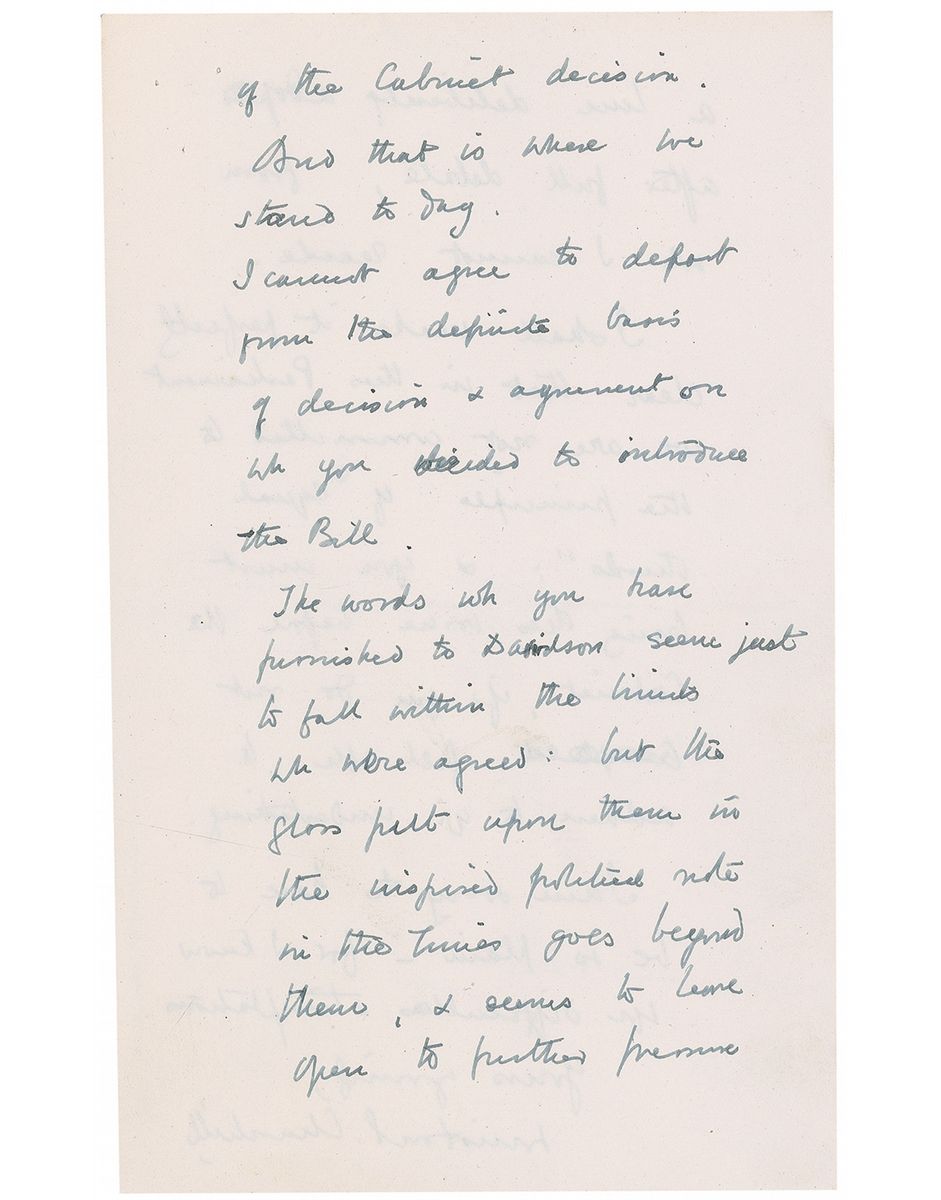 of the Cabinet decision.
And that is where we
stand to day.
I cannot agree to depart
from the definite basis
of decision & agreement on
wh you decided to introduce
the Bill.
The words wh you have
furnished to Davidson seem just
to fall within the limits
wh were agreed: but the
gloss put upon them in
the inspired political note
in the Times goes beyond
them, & seems to leave
open to further pressure